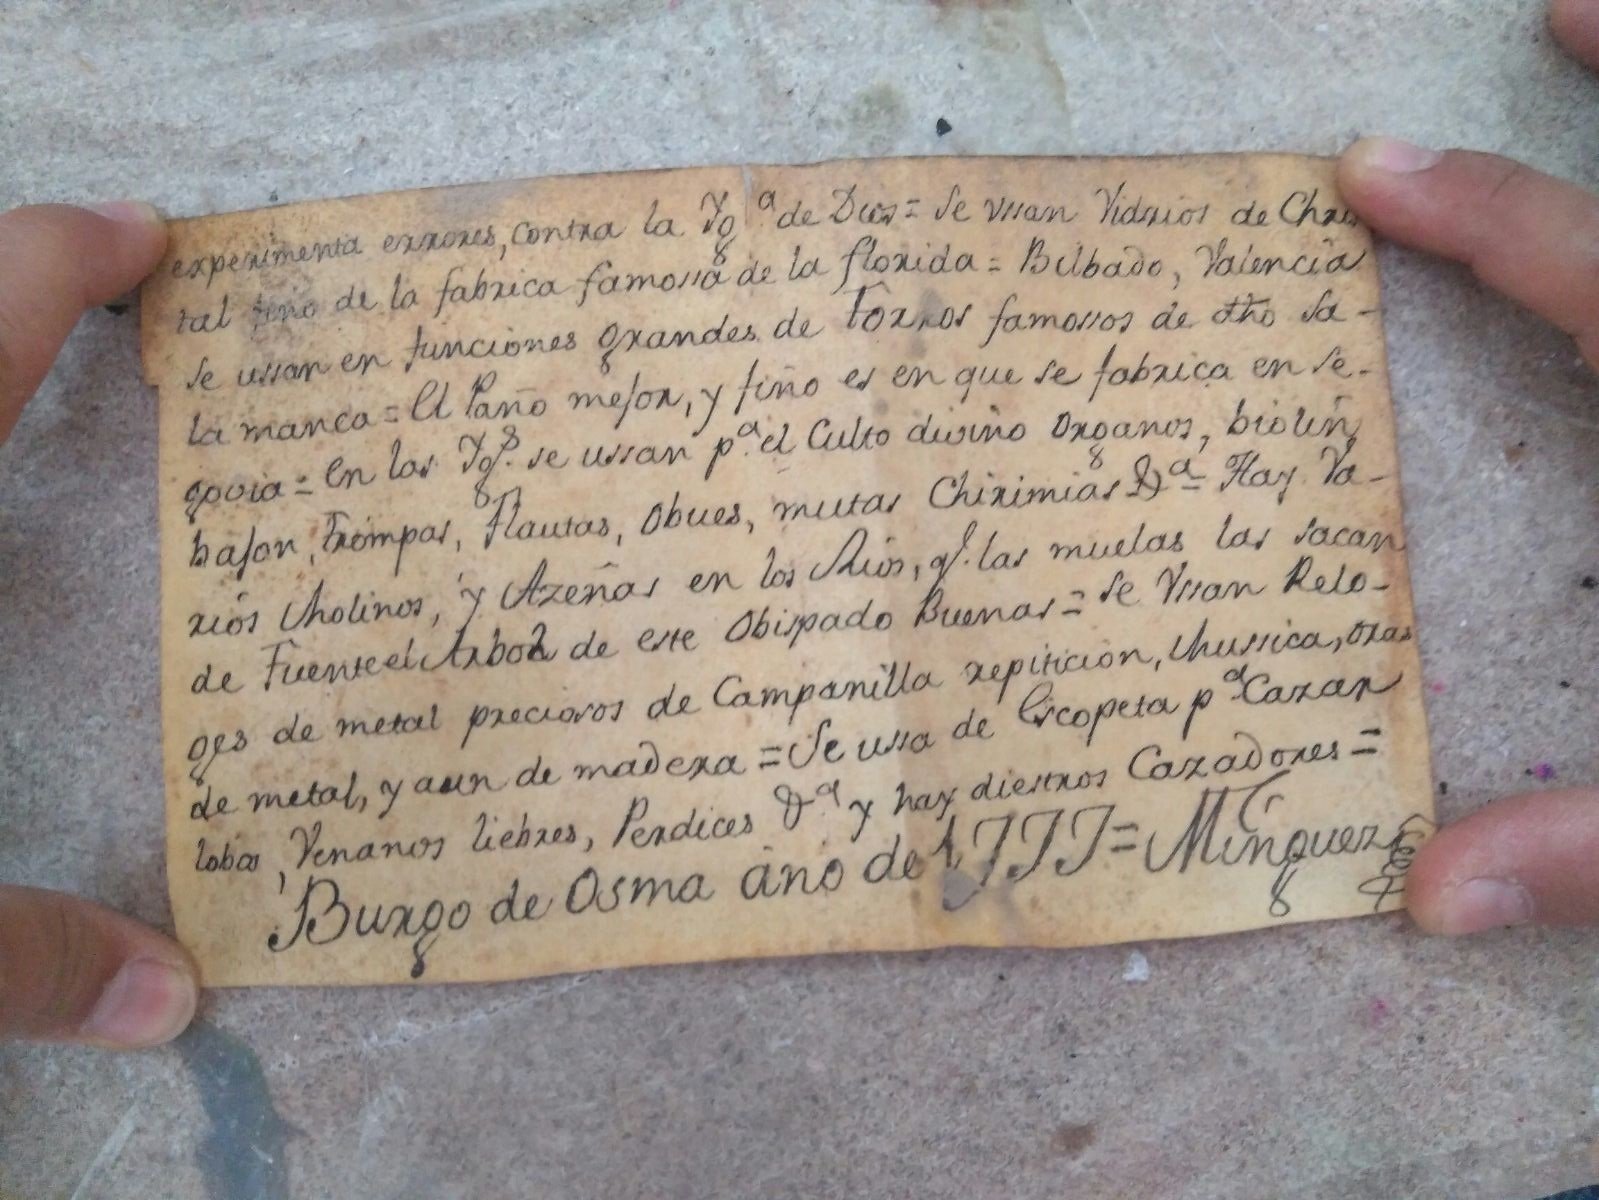 experimenta errores, contra la Yg.ª de Dios = se ussan Vidrios de Chris
tal fino de la fabrica famossa de la florida = Bilbado, Valencia
se ussan en funciones grandes de Torros famossos de dho Sa-
lamanca = El Paño mejor, y fiño es en que se fabrica en Se-
govia = En las Yg.s se ussan p.ª el Culto diviño Organos, biolin,
bajon, Trompas, Flautas, Obues, mutas Chirimias &ª = Hay Va-
rios Molinos, y Azeñas en los Rios, q.e las muelas las sacan
de Fuente el Arbol de este Obispado Buenas = se Ussan Relo-
ges de metal preciosos de Campanilla repiticion, Mussica, oras
de metal, y aun de madera = Se ussa de Escopeta p.ª Cazar
lobos, Venanos liebres, Perdices &ª y hay diestros Cazadores =
Burgo de Osma año de 1777 = Minguez